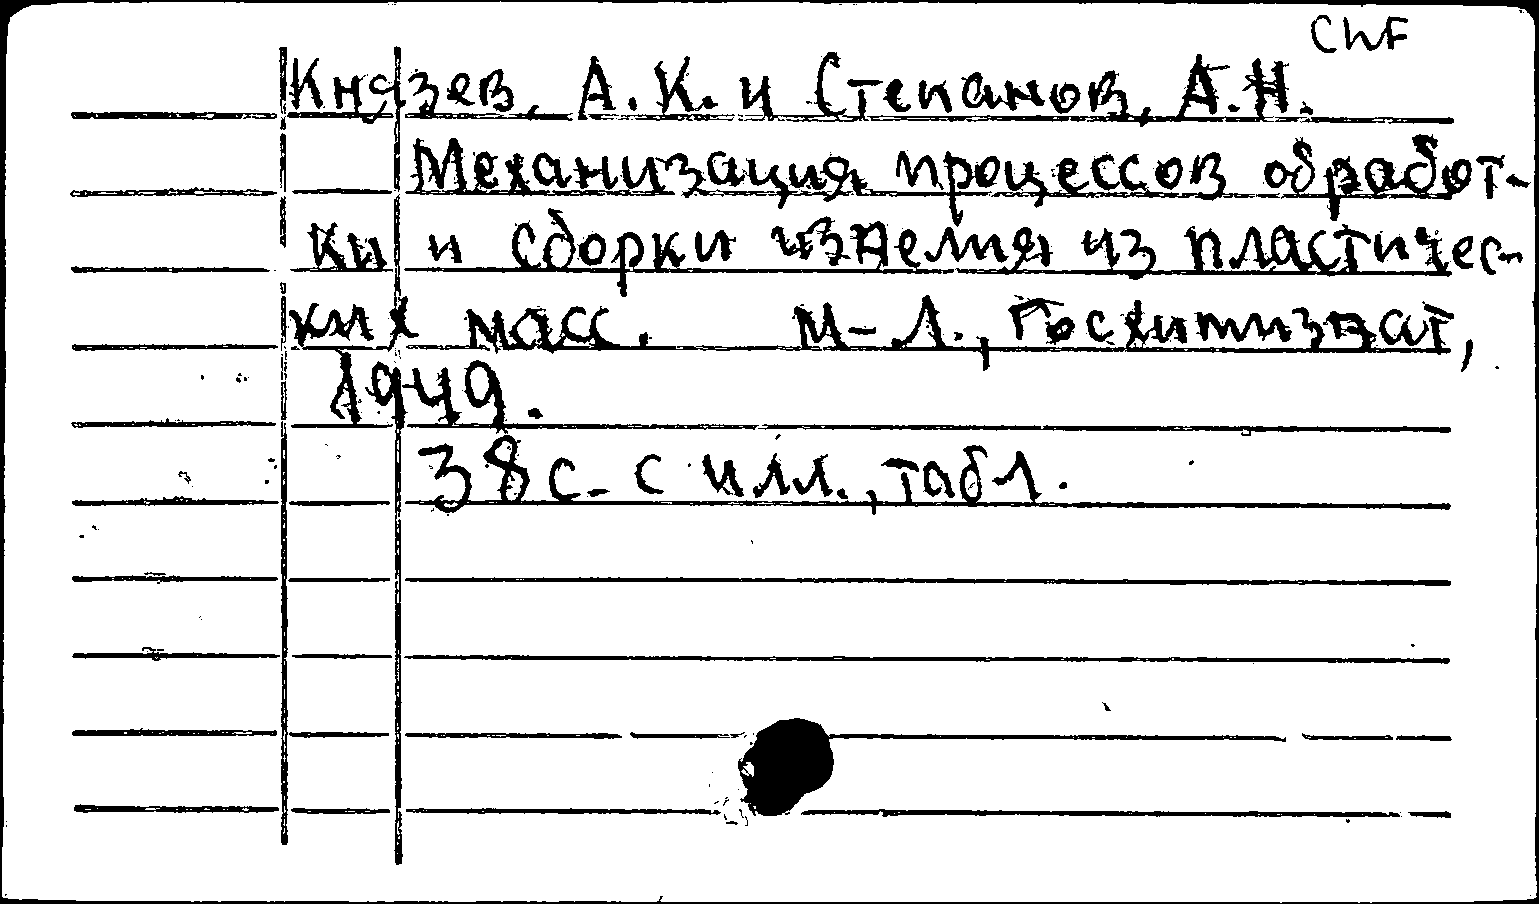 СhF
Князев, А.К. и Степанов, А.Н.
Механизация процессов обработ-
ки и сборки изделия из пластичес-
ких масс. М-Л., Госхимиздат,
1949.
38 с. с илл., табл.